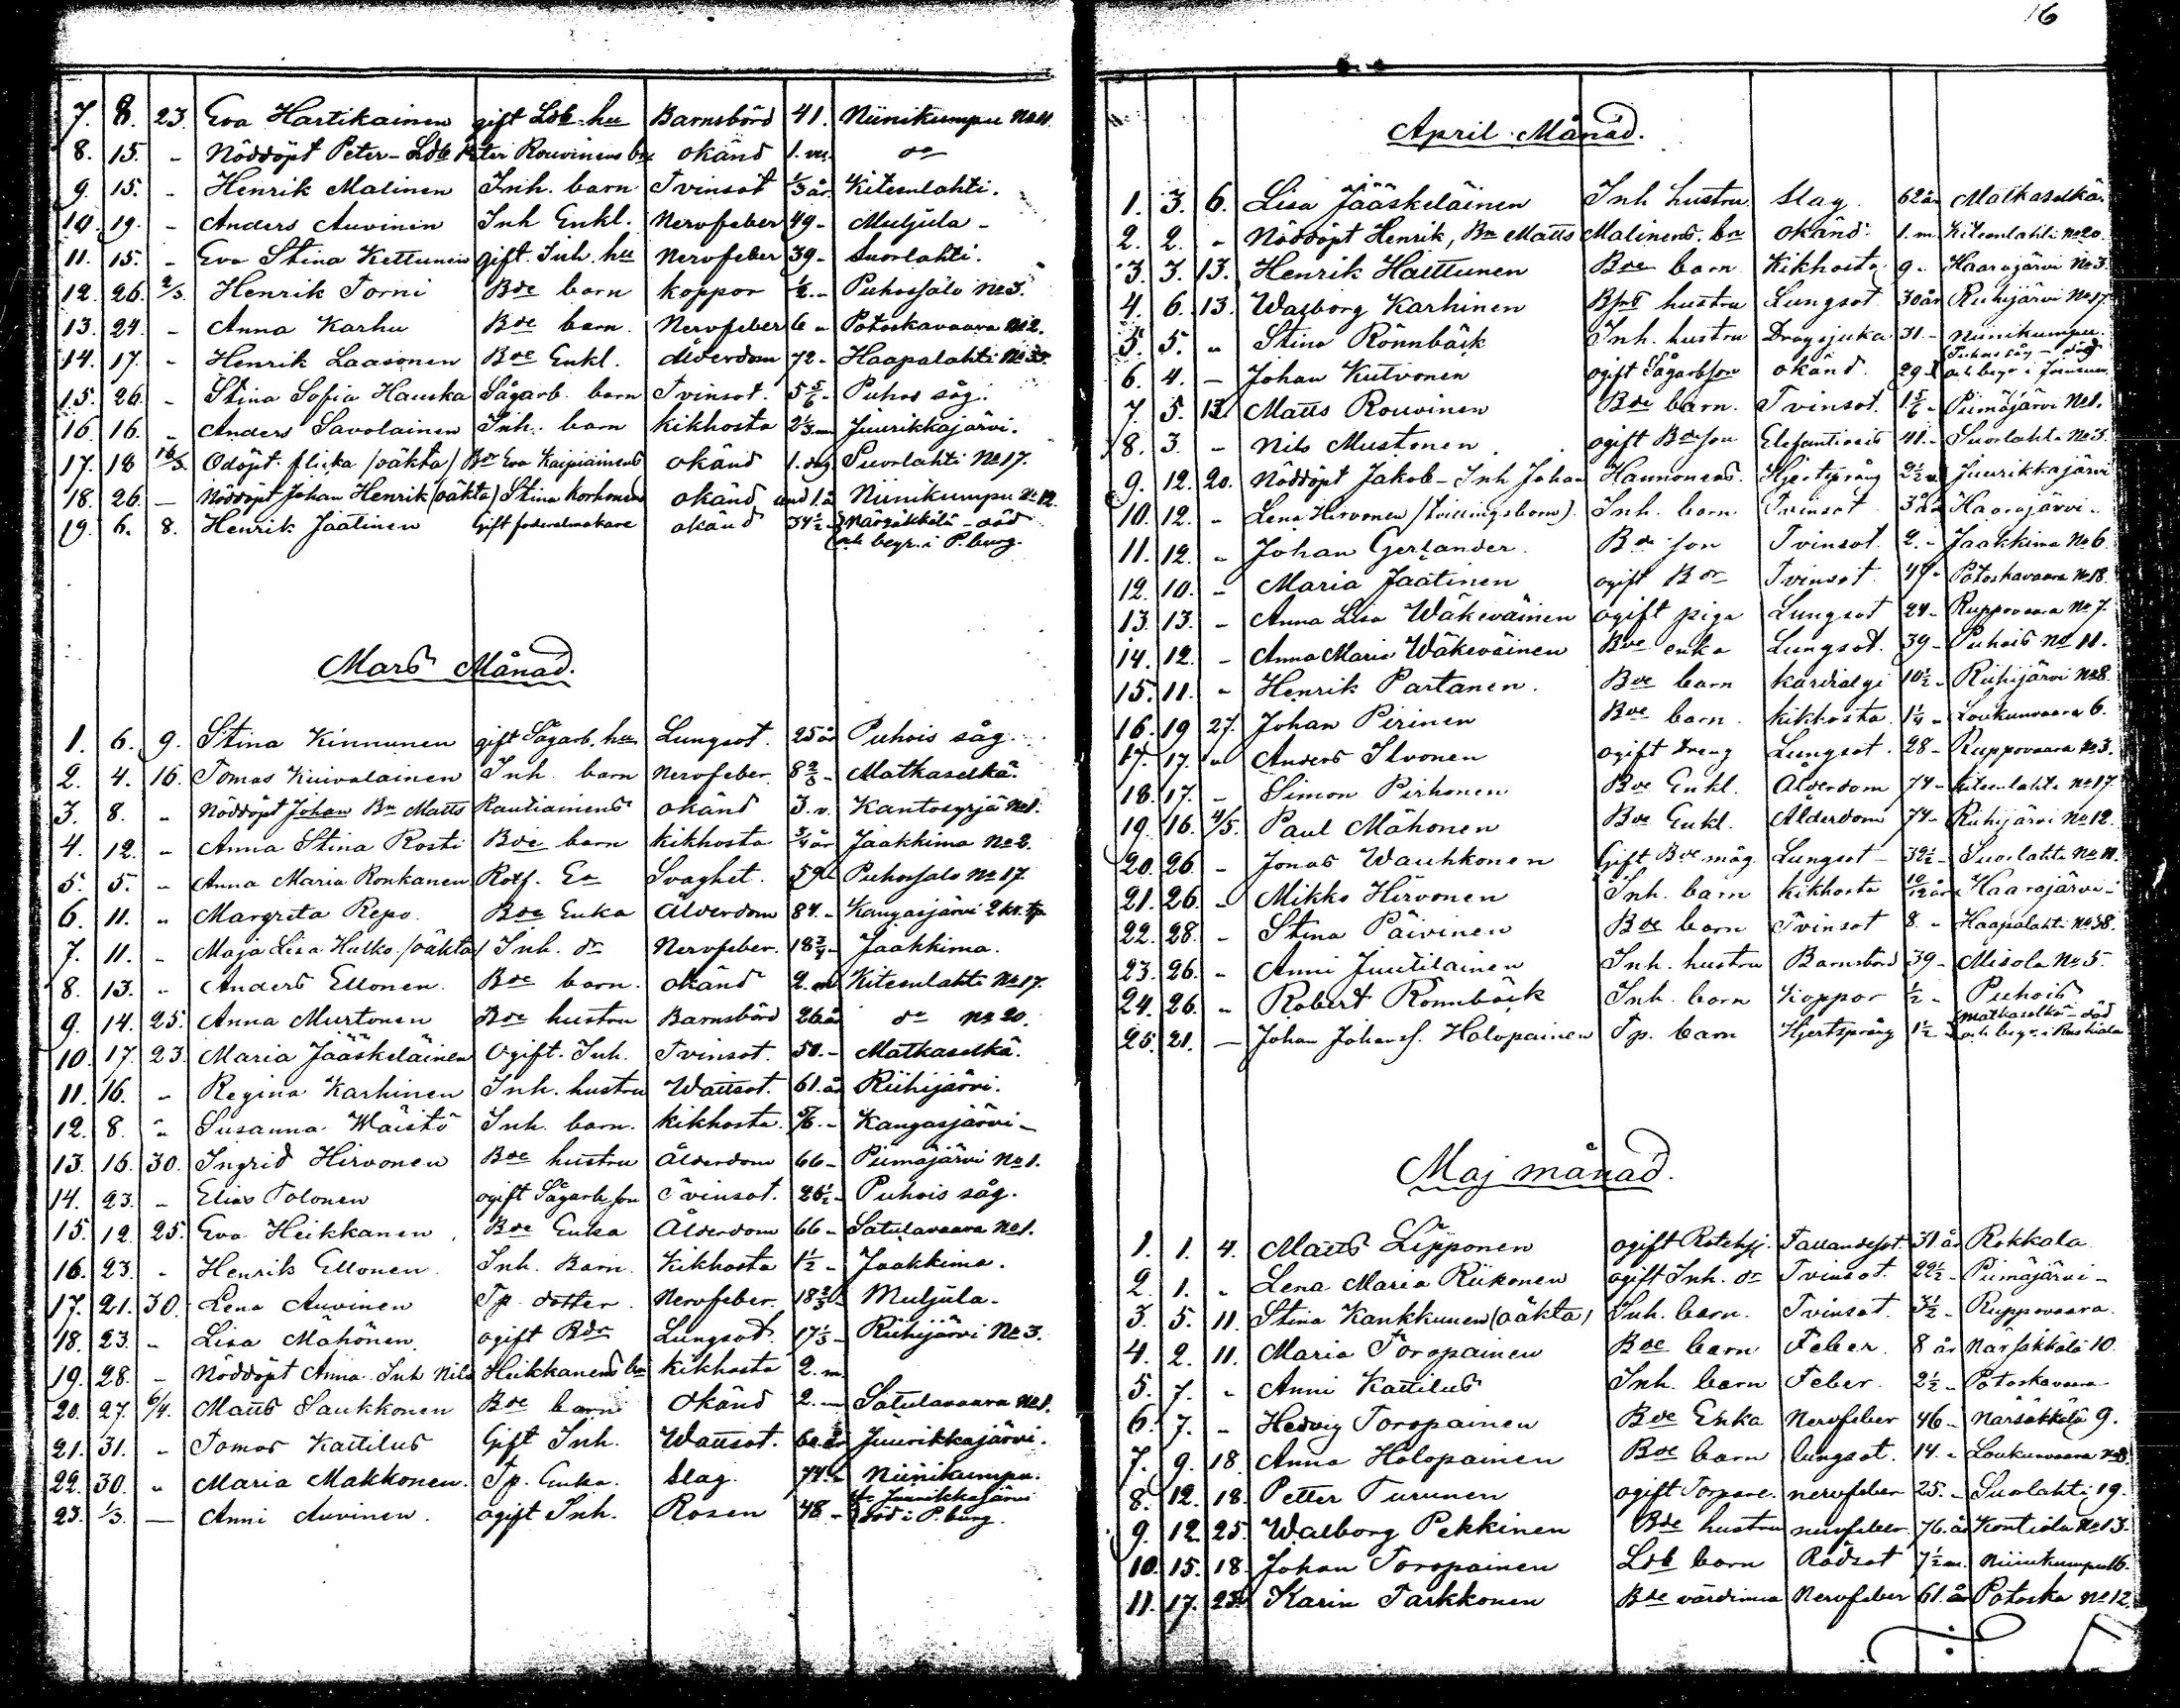 16
7. 8. 23. Eva Hartikainen gift Ldb. hu Barnsbörd 41. Niinikumpu No 11.
8. 15. - Nöddöpt Peter - Ldb Peter Rouvinens bn okänd 1. vec. do
9. 15. - Henrik Malinen Inh. barn Tvinsot 1/3 år Kiteenlahti.
10. 19. - Anders Auvinen Inh Enkl. Nervfeber 49 - Muljula -
11. 15. - Eva Stina Kettunen gift Inh. hu Nervfeber 39 - Suorlahti.
12. 26. 2/3. Henrik Torni Bde barn koppor 1/2. - Puhossalo No 3.
13. 24. - Anna Karhu Bde barn. Nervfeber 6 - Potoskavaara No 2.
14. 17. - Henrik Laasonen Bde Enkl. Ålderdom 72 - Haapalahti No 35.
15. 26. - Stina Sofia Hauska Sågarb. barn Tvinsot. 5 5/6 - Puhos såg.
16. 16. - Anders Savolainen Inh. barn kikhosta 2 1/3 m Juurikkajärvi.
17. 18 16/3. Odöpt flicka (oäkta) Bdr Eva Kaipiainens okänd 1. dag Suorlahti No 17.
18. 26. - Nöddöpt Johan Henrik (oäkta) Stina Korhonens okänd und 1. å Niinikumpu No 12.
19. 6. 8. Henrik Jaatinen Gift foderalmakare okänd 34 1/2 - Närsäkkälä - död
och begr. i P.burg.
Mars Månad.
1. 6. 9. Stina Kinnunen gift Sågarb. hu Lungsot. 25 år Puhois såg.
2. 4. 16. Tomas Kuivalainen Inh. barn Nervfeber 8 2/3 - Matkaselkä.
3. 8. - Nöddöpt Johan Bn Matts Rautiainens okänd 3. v. Kantosyrjä No 1.
4. 12. - Anna Stina Rosti Bde barn kikhosta 3/4 år Jaakkima No 2.
5. 5. - Anna Maria Ronkanen Rotf. Ea Svaghet. 59 Puhossalo No 17.
6. 11. - Margreta Repo. Bde Enka Ålderdom 84. - Kangasjärvi 2 kv. tp
7. 11. - Maja Lisa Hulko (oäkta) Inh. dr Nervfeber. 18 3/4 - Jaakkima.
8. 13. - Anders Ellonen. Bde barn. okänd 2. m Kiteenlahti No 17.
9. 14. 25. Anna Murtonen Bde hustru Barnsbörd 26 år do No 20.
10. 17. 23. Maria Jääskeläinen Ogift. Inh. Tvinsot. 50. - Matkaselkä.
11. 16. - Regina Karhinen Inh. hustru Wattsot. 61. år Riihijärvi.
12. 8. - Susanna Wäistö Inh. barn. kikhosta 5/6. - Kangasjärvi -
13. 16. 30. Ingrid Hirvonen Bde hustru Ålderdom 66 - Piimäjärvi No 1.
14. 23. - Elias Tolonen ogift Sågarb. son Tvinsot. 26 1/2 - Puhois såg.
15. 12. 25. Eva Heikkanen Bde Enka Ålderdom 66 - Satulavaara No 1.
16. 23. - Henrik Ellonen Inh. Barn Kikhosta 1 1/2 - Jaakkima.
17. 21. 30. Lena Auvinen Tp. dotter. Nervfeber. 18 2/3 - Muljula -
18. 23. - Lisa Mähönen ogift Bdr Lungsot. 17 1/3 - Riihijärvi No 3.
19. 28. - Nöddöpt Anna. Inh Nils Heikkanens bn kikhosta 2. m
20. 27. 6/4. Matts Saukkonen Bde barn okänd 2. - Satulavaara No 1.
21. 31. - Tomas Kattilus Gift Inh. Wattsot. 60 år Juurikkajärvi.
22. 30. - Maria Makkonen. Tp. Enka. Slag. 74 - Niinikumpu.
23. 1/3. - Anni Auvinen. ogift Inh. Rosen 48 - fr Juurikkajärvi
död i P.burg.
April Månad.
1. 3. 6. Lisa Jääskeläinen Inh hustru Slag. 62 år Matkaselkä.
2. 2. - Nöddöpt Henrik, Bn Matts Malinens bn okänd 1. m Kiteenlahti No 20.
3. 3. 13. Henrik Hattunen Bde barn Kikhosta 9 - Haarajärvi No 3.
4. 6. 13. Walborg Karhinen Bfds hustru Lungsot 30 år Riihijärvi No 17.
5. 5. - Stina Rönnbäck Inh. hustru Dragsjuka 31 - Niinikumpu.
6. 4. - Johan Kutvonen ogift Sågarbson okänd. 29 Puhos såg - död
och begr. i
7. 5. 13. Matts Rouvinen Bde barn. Tvinsot. 1 5/6 - Piimäjärvi No 1.
8. 3. - Nils Mustonen ogift Bdeson Elefantiasis 41. - Suorlahti No 3.
9. 12. 20. Nöddöpt Jakob - Inh Johan Hannonens. Hjertsprång 2 1/2 Juurikkajärvi
10. 12. - Lena Hirvonen (tvillingsbarn). Inh. barn Tvinsot 3 år Haarajärvi.
11. 12. - Johan Gerlander. Bde son Tvinsot. 2. - Jaakkima No 6.
12. 10. - Maria Jaatinen ogift Bdr Tvinsot. 47 - Potoskavaara No 18.
13. 13. - Anna Lisa Wäkeväinen ogift piga Lungsot 24 - Ruppovaara No 7.
14. 12. - Anna Maria Wäkeväinen Bde enka Lungsot. 39 - Puhois No 11.
15. 11. - Henrik Partanen. Bde barn kardialgi 10 1/2 - Riihijärvi No 8.
16. 19 27. Johan Pirinen Bde barn. kikhosta. 1 1/4 - Loukunvaara 6.
17. 17. - Anders Ilvonen ogift dreng Lungsot. 28 - Ruppovaara No 3.
18. 17. - Simon Pirhonen Bde Enkl. Ålderdom 74 - Kiteenlahti No 17.
19. 16. 4/5. Paul Mähonen Bde Enkl. Ålderdom 74 - Riihijärvi No 12.
20. 26. - Jonas Wauhkonen Gift Bde måg Lungsot - 32 1/2 - Suorlahti No 11.
21. 26. - Mikko Hirvonen Inh. barn kikhosta 10/12 år Haarajärvi -
22. 28. - Stina Päivinen Bde barn Tvinsot 8 - Haapalahti No 38.
23. 26. - Anni Juutilainen Inh. hustru Barnsbörd 39 - Misola No 5.
24. 26. - Robert Rönnbäck Inh. barn Koppor 1/2 - Puhois
25. 21. - Johan Johansf. Holopainen Tp. barn Hjertsprång 1 1/2 - Matkaselkä - död
och begr. i Ruskiala
Maj månad.
1. 1. 4. Matts Lipponen ogift Rotehj. Fallandesot. 31 år Rokkala
2. 1. - Lena Maria Riikonen ogift Inh. dr Tvinsot. 22 1/2 - Piimäjärvi -
3. 5. 11. Stina Kankkunen (oäkta) Inh. barn. Tvinsot. 3 1/2 - Ruppovaara.
4. 2. 11. Maria Toropainen Bde barn Feber. 8 år Närsäkkälä 10.
5. 7. - Anni Kattilus Inh. barn Feber. 2 1/2 - Potoskavaara
6. 7. - Hedvig Toropainen Bde Enka Nervfeber 46 - Närsäkkälä 9.
7. 9. 18. Anna Holopainen Bde barn lungsot. 14. - Loukunvaara No 8.
8. 12. 18. Petter Turunen ogift Torpare. nervfeber 25. - Suorlahti 19.
9. 12. 25. Walborg Pekkinen Bde hustru nervfeber. 76. år Kontiola No 13.
10. 15. 18. Johan Toropainen Ldb barn Rödsot 7 1/2 m. Niinikumpu 16.
11. 17. 23. Karin Tarkkonen Bde värdinna Nervfeber 61. år Potoska No 12.